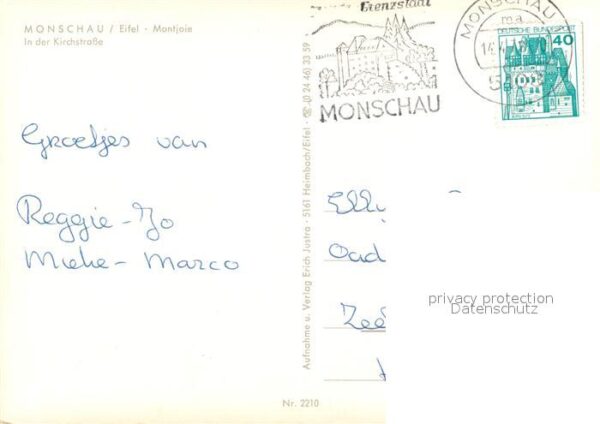 MONSCHAU / Eifel - Montjoie
In der Kirchstraße
Groetjes van
Reggie-Jo
Mieke - Marco
Aufnahme u. Verlag Erich Justra · 5161 Heimbach/Eifel · ☎ (0 24 46) 33 59
Nr. 2210
Grenzstadt
MONSCHAU
MONSCHAU
ma
DEUTSCHE BUNDESPOST
40
Oud
Zee
privacy protection
Datenschutz